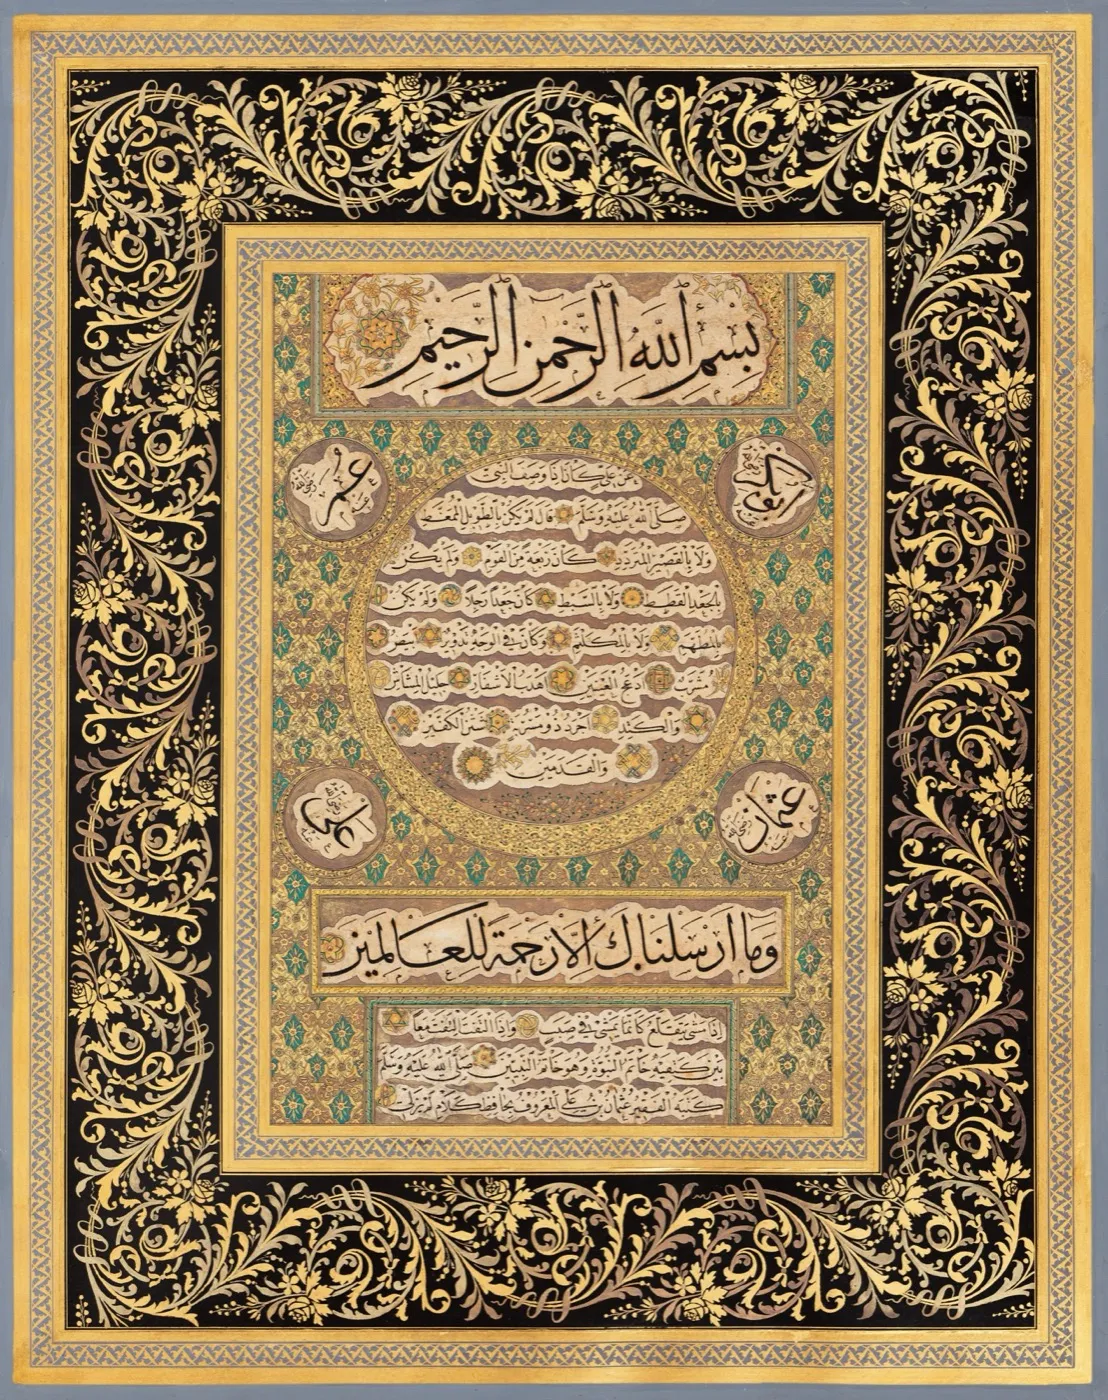 بِسْمِ اللَّهِ الرَّحْمٰنِ الرَّحِيمِ
ابو بكر رضي الله عنه
عمر رضي الله عنه
عن علي كان اذا وصف النبي
صلى الله عليه وسلم قال لم يكن بالطويل الممغط
ولا بالقصير المتردد كان ربعة من القوم ولم يكن
بالجعد القطط ولا بالسبط كان جعدا رجلا ولم يكن
بالمطهم ولا بالمكلثم وكان في الوجه تدوير ابيض
مشرب ادعج العينين اهدب الاشفار جليل المشاش
والكتد اجرد ذو مسربة شثن الكفين
والقدمين
عثمان رضي الله عنه
علي رضي الله عنه
وما ارسلناك الا رحمة للعالمين
اذا مشى يتقلع كانما يمشي في صبب واذا التفت التفت معا
بين كتفيه خاتم النبوة وهو خاتم النبيين صلى الله عليه وسلم
كتبه الفقير عثمان بن علي المعروف بحافظ كلام